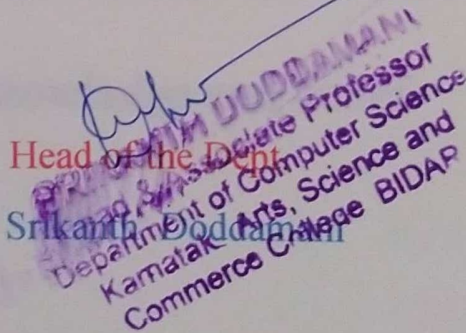 Head of the Dept
Srikanth Doddamani
DODDAMANI
& Associate Professor
Department of Computer Science
Karnatak Arts, Science and
Commerce College BIDAR